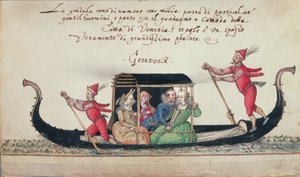 Le gondole sono di numero otto milla parte di particolar
gentilhuomini, e parte per il guadagno e comodo della
Città di Venetia: et è un spasso
veramente di grandissimo piacere.
GONDOLA